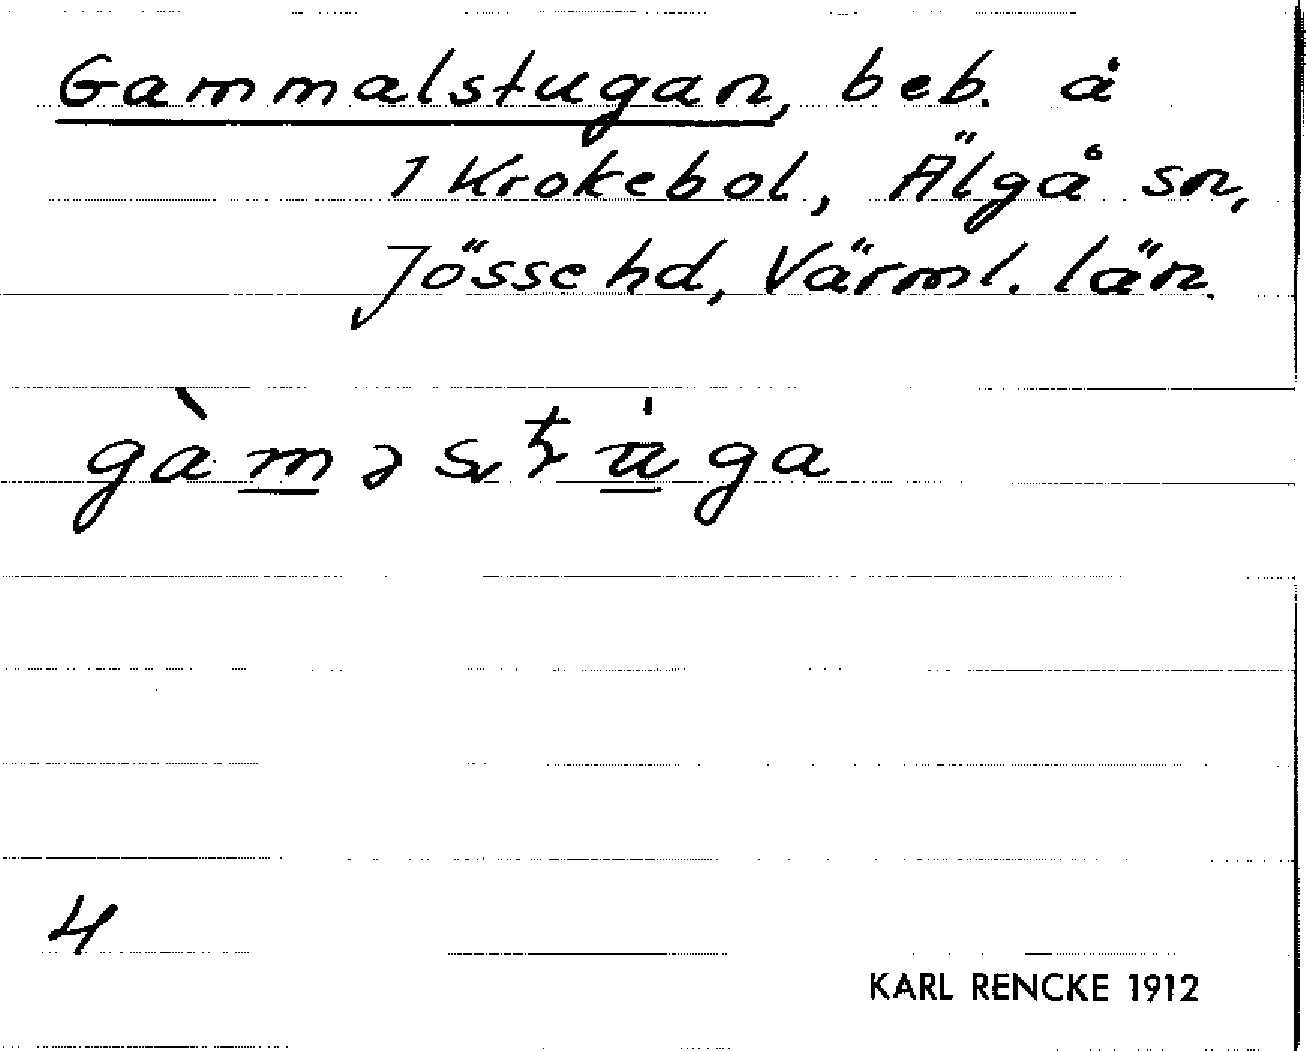 Gammalstugan, beb. å
1 Krokebol, Älgå sn,
Jösse hd, Värml. län.
4
KARL RENCKE 1912